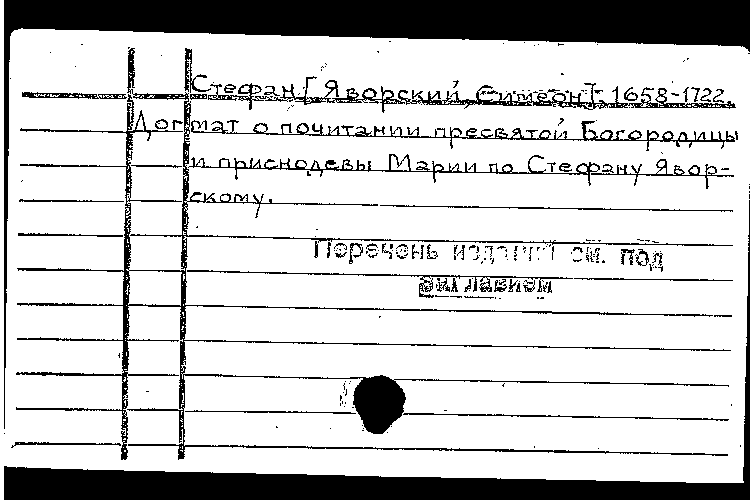 Стефан [Яворский, Симеон] 1658-1722.
Догмат о почитании пресвятой Богородицы
и приснодевы Марии по Стефану Явор-
скому.
Перечень изданий см. под
заглавием